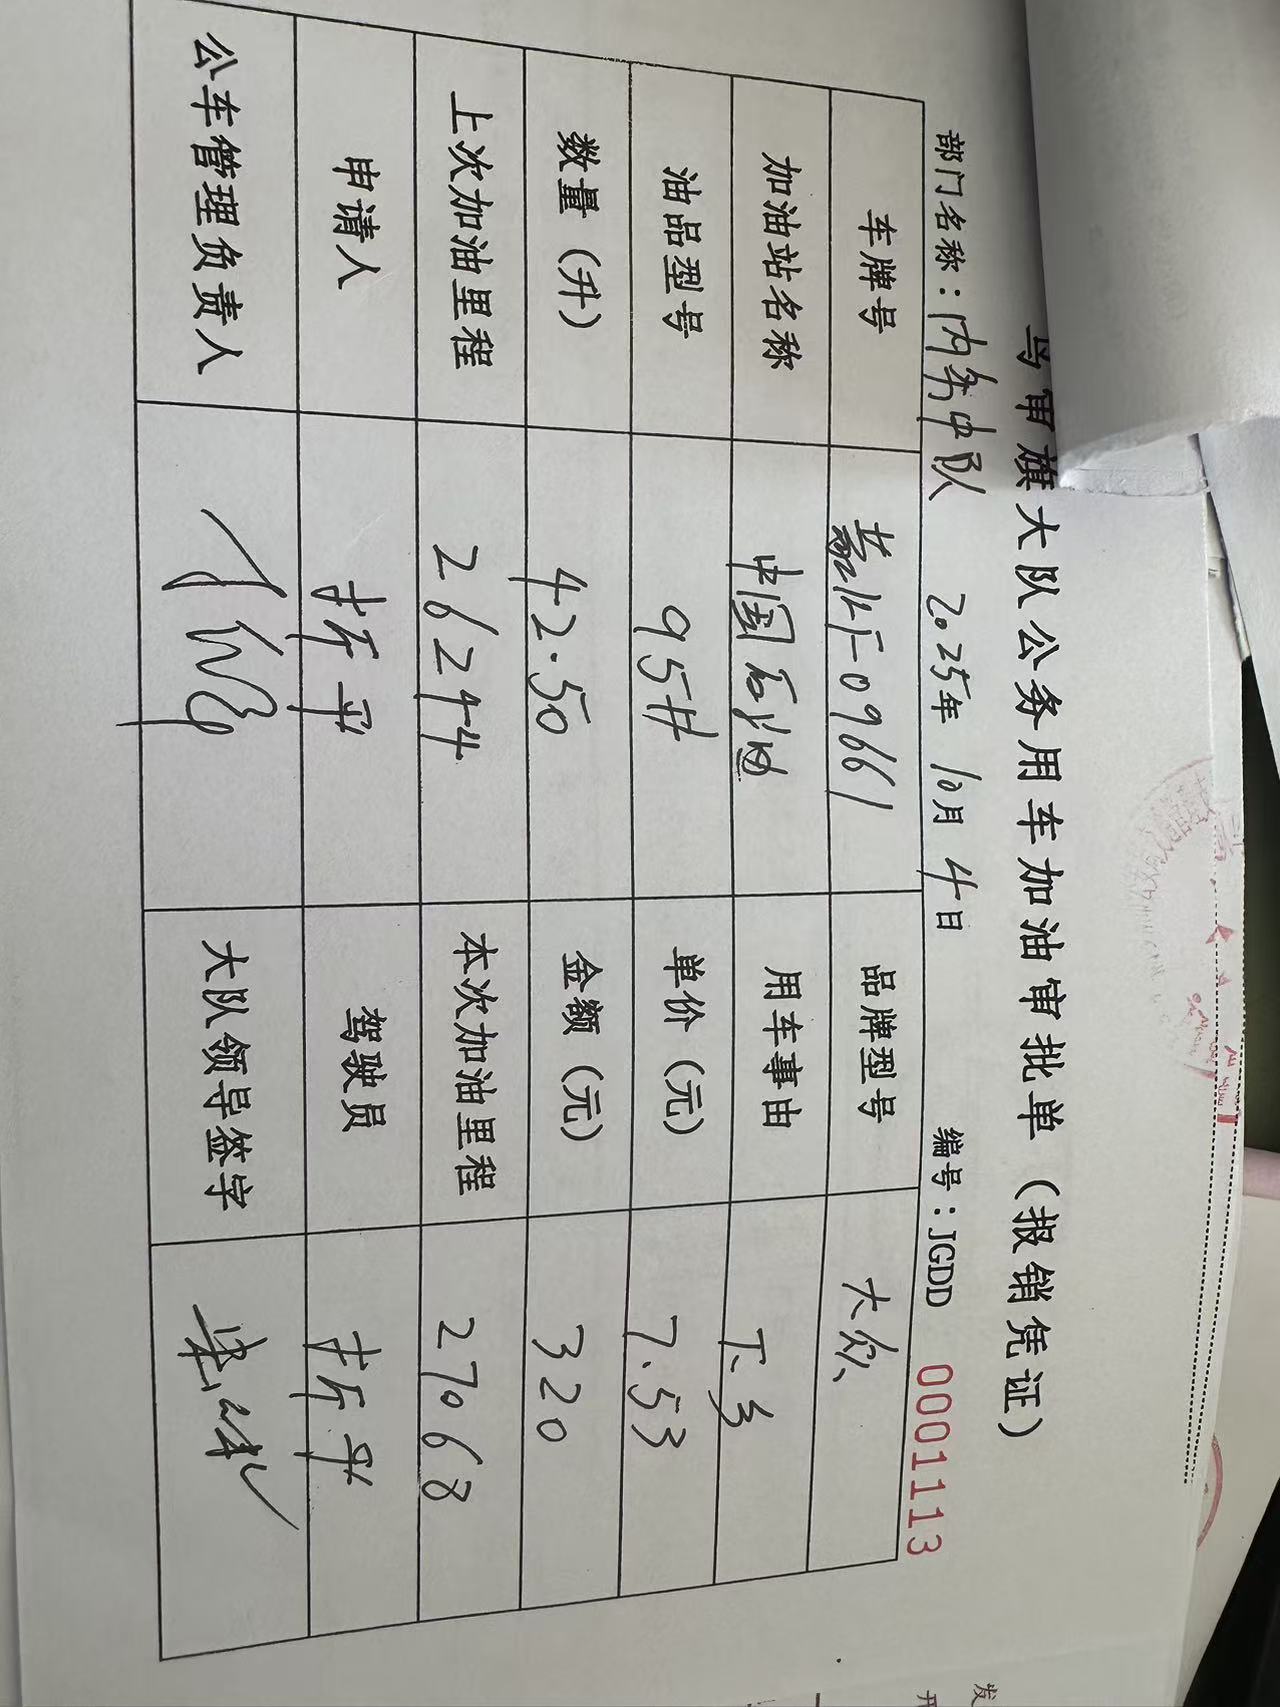 审旗大队公务用车加油审批单（报销凭证）
部门名称：内务中队 2025年 10月 4日 编号：JGDD 0001113
车牌号 0961 品牌型号 大众
加油站名称 中国石油 用车事由 下乡
油品型号 95# 单价（元） 7.53
数量（升） 42.50 金额（元） 320
上次加油里程 26244 本次加油里程 27068
申请人 平 驾驶员 平
公车管理负责人 大队领导签字
发
开